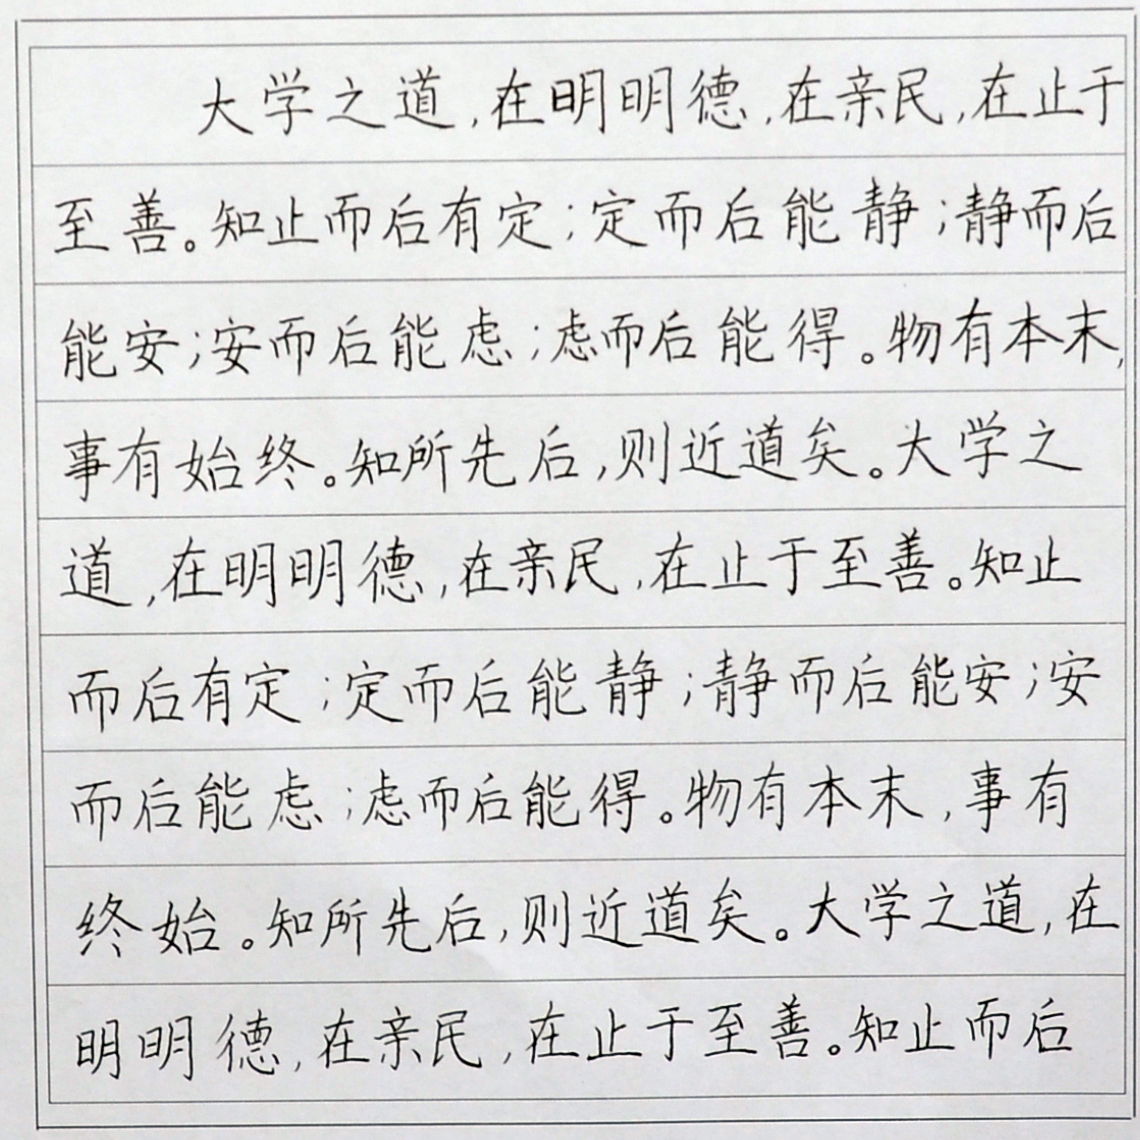 大学之道,在明明德,在亲民,在止于
至善。知止而后有定;定而后能静;静而后
能安;安而后能虑;虑而后能得。物有本末,
事有始终。知所先后,则近道矣。大学之
道,在明明德,在亲民,在止于至善。知止
而后有定;定而后能静;静而后能安;安
而后能虑;虑而后能得。物有本末,事有
终始。知所先后,则近道矣。大学之道,在
明明德,在亲民,在止于至善。知止而后